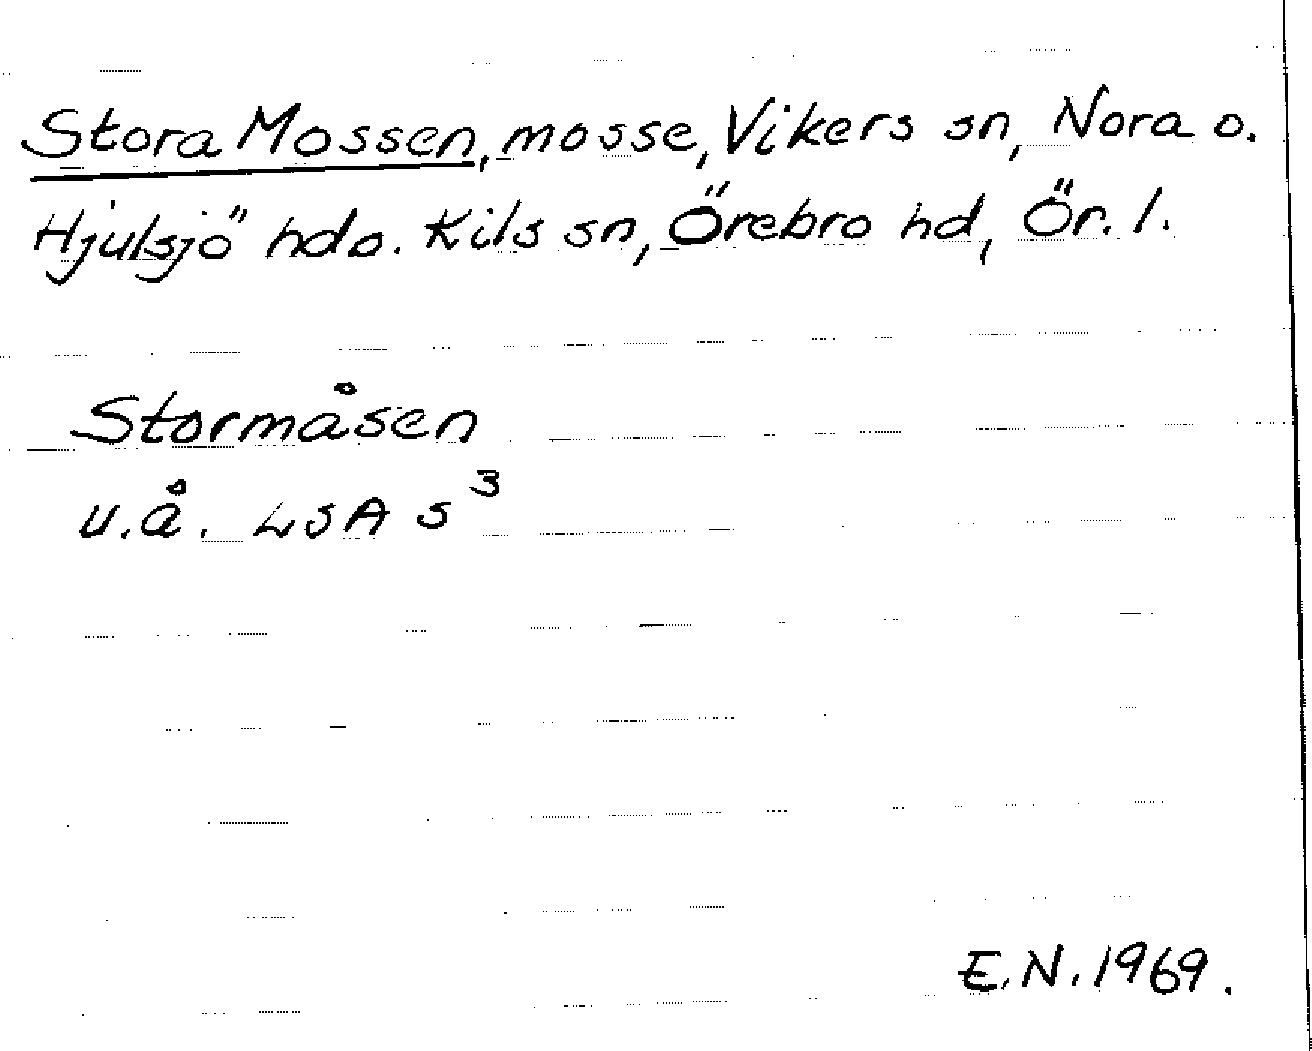 Stora Mossen, mosse, Vikers sn, Nora o.
Hjulsjö hdo. Kils sn, Örebro hd, Ör. l.
Stormåsen
u.å. LSA S³
E.N. 1969.